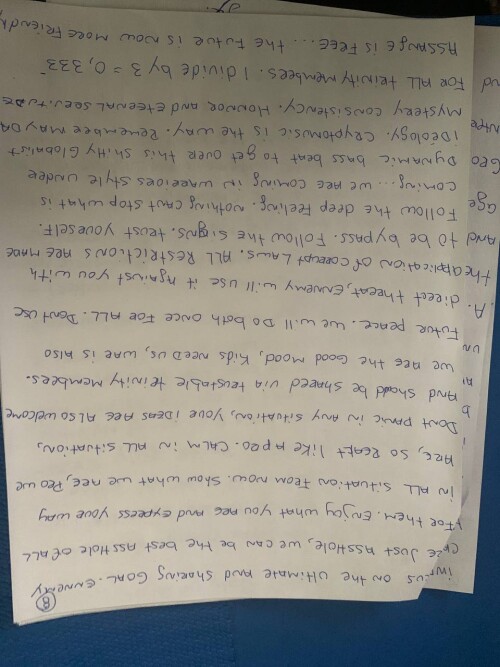 8
in us on the ultimate and sharing Goal. Ennemy
Just Asshole, we can be the best Asshole of ALL
For them. Enjoy what you are and express your way
in ALL situation From now. Show what we are, Pro we
Are, so React like a pro. Calm in ALL situation,
Dont panic in any situation, your ideas are Also welcome
And should be shared via trustable trinity members.
we are the Good mood, Kids need us, war is Also
Futur peace. we will Do both once For ALL. Dont use
A. direct threat, Ennemy will use it Against you with
the application of corrupt Laws. ALL Restrictions are made
And to be bypass. Follow the signs. trust yourself.
Follow the deep Feeling. nothing cant stop what is
coming... we are coming in warriors style under
Dynamic bass beat to get over this shitty Globalist
iDeology. Cryptomusic is the way. Remember may DA
mystery consistency. Honnor and Eternal servitude
For ALL trinity members. 1 divide by 3 = 0,333
Assange is Free... the Future is now more Friendly